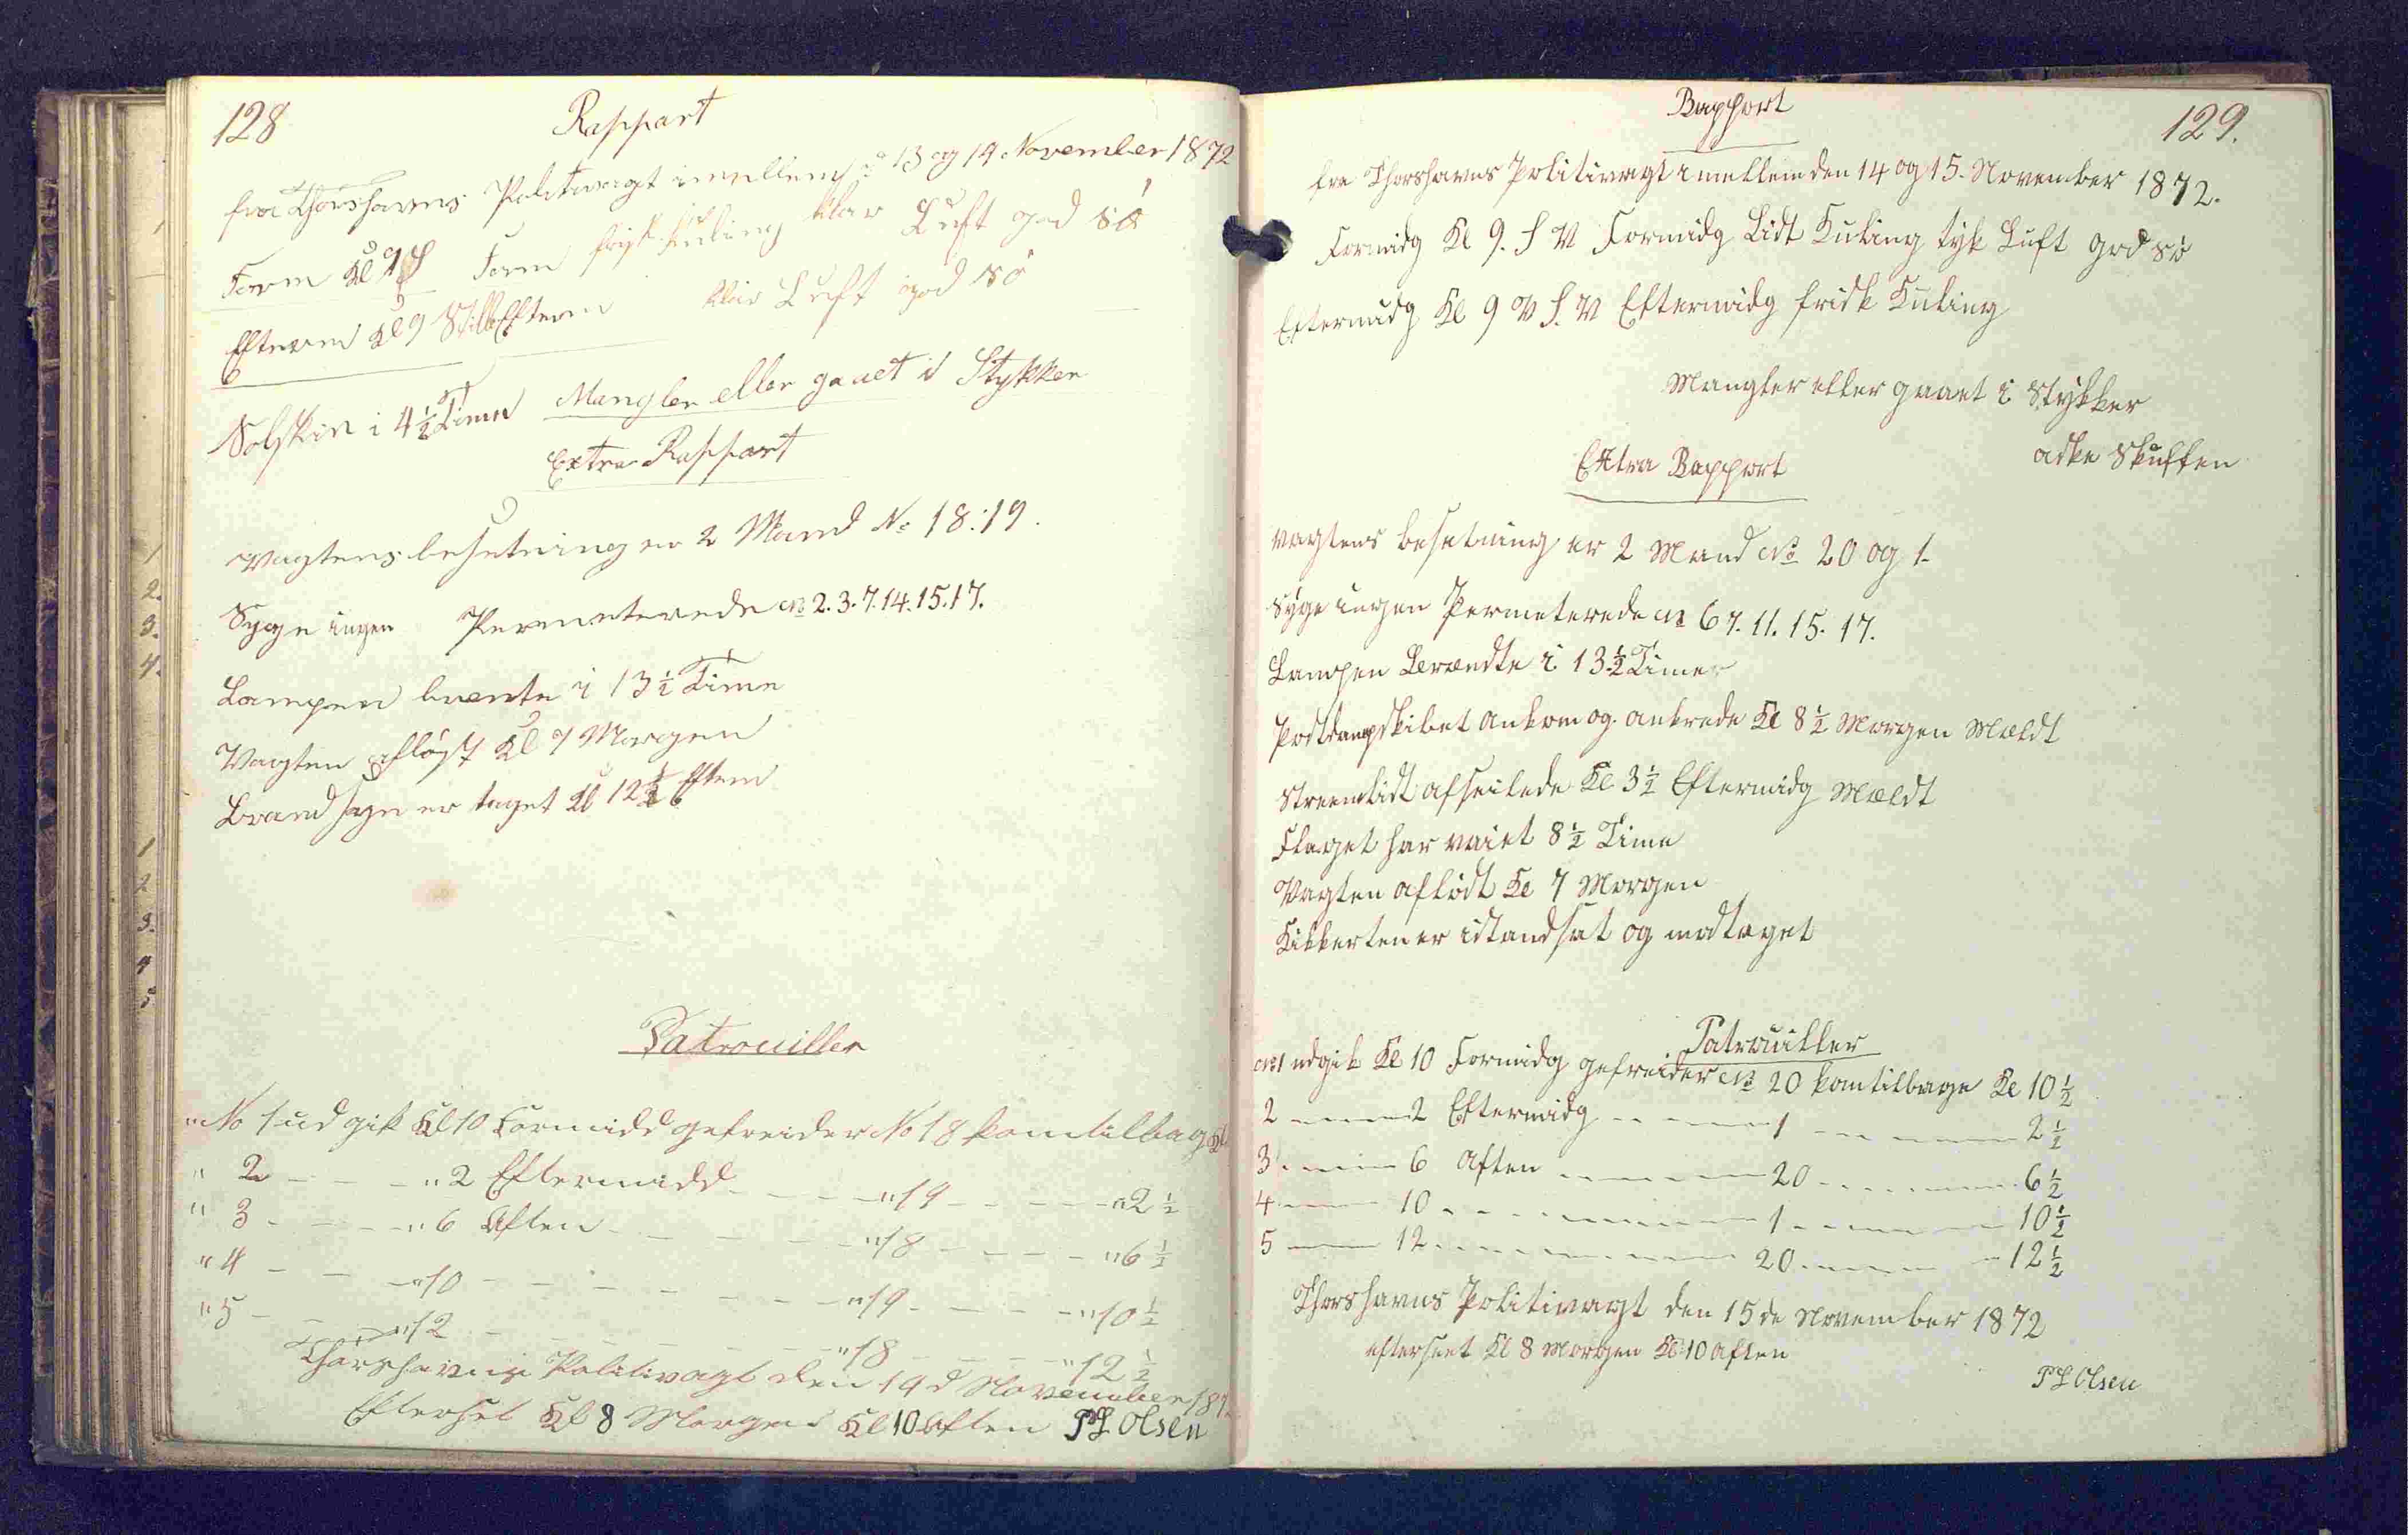 128
Rappart
fra Thorshavns Politivagt imellem d 13 og 14 November 1872
Form Kl 9 S Form frisk Kuling klar Luft god Sö
Efterm Kl 9 Stille Efterm klar Luft god Sö
Solskin i 4½ Time Mangler eller gaaet i Stykker
Extra Rappart
Vagtens besetning er 2 Mand No 18.19.
Syge ingen Permeterede No 2.3.7.14.15.17.
Lampen brente i 13½ Time
Vagten aflöst Kl 7 Morgen
Brandsyn er taget Kl 12½ Efterm
Patrouiller
No 1 udgik Kl 10 Formidd gefreider No 18 kom tilbage Kl
" 2 - - - " 2 Eftermidd - - - " 19 - - - " 2½
" 3 - - - " 6 Aften - - - " 18 - - - " 6½
" 4 - - - " 10 - - - " 19 - - - " 10½
" 5 - - - " 12 - - - " 18 - - - " 12½
Thorshavns Politivagt den 14d November 187
Efterset Kl 8 Morgen Kl 10 Aften PL Olsen
129.
Rapport
fra Thorshavns Politivagt imellem den 14 og 15. November 1872.
Formidg Kl 9. S V Formidg Lidt Kuling tyk Luft god Sö
Eftermidg Kl 9 V S. V Eftermidg frisk Kuling
Mangler eller gaaet i Stykker
aske Skuffen
Extra Rapport
Vagtens besetning er 2 Mand No 20 og 1.
Syge ingen Permeterede No 6 7. 11. 15. 17.
Lampen Brændte i 13½ Timer
Postdampskibet ankom og ankrede Kl 8½ Morgen Mældt
afseilede Kl 3½ Eftermidg Mældt
Flaget har vaiet 8½ Time
Vagten aflödt Kl 7 Morgen
Kikkerten er istandsat og modtaget
Patrouiller
No 1 udgik Kl 10 Formidg gefreider No 20 kom tilbage Kl 10½
2 - - - 2 Eftermidg - - - 1 - - - 2½
3 - - - 6 Aften - - - 20 - - - 6½
4 - - - 10 - - - 1 - - - 10½
5 - - - 12 - - - 20 - - - 12½
Thorshavns Politivagt den 15de November 1872
efterseet Kl 8 Morgen Kl 10 Aften
PL Olsen
1
1
2.
3.
4.
1
2
3.
4
5